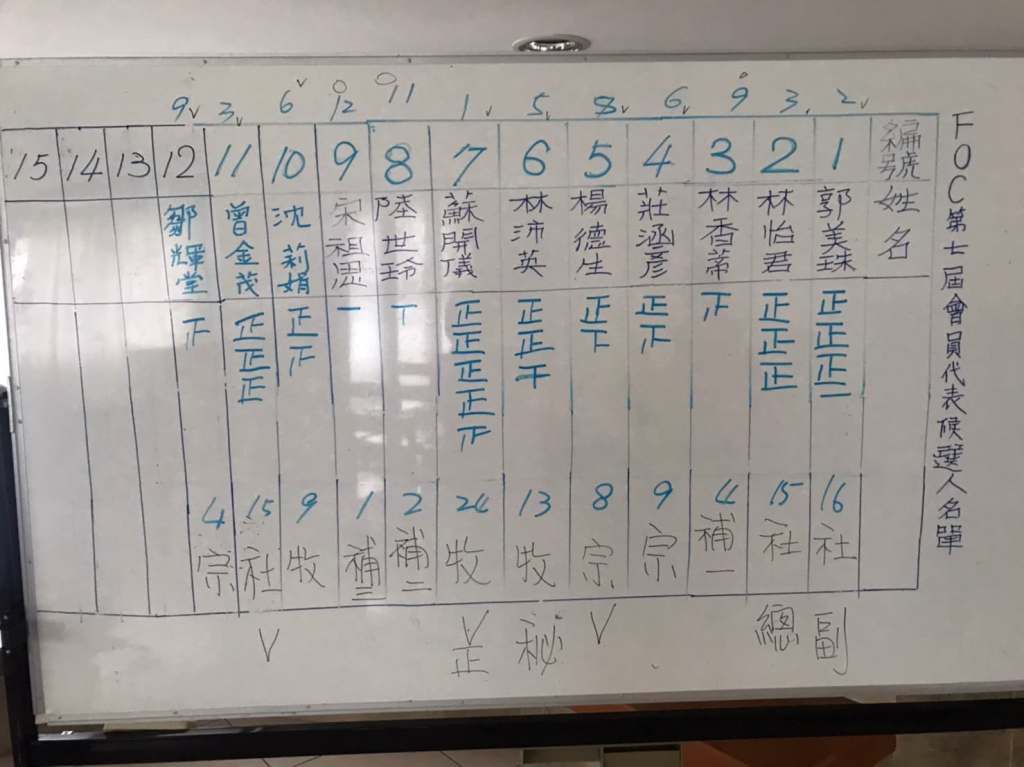 FOC第七屆會員代表候選人名單
編號 姓名
2 ˅
1 郭美珠 正正正一 16 社 副
3 ˅
2 林怡君 正正正 15 社 總
9
3 林香蒂 正 4 補一
6 ˅
4 莊涵彥 正正 9 宗
8 ˅
5 楊德生 正下 8 宗 V
5 ˅
6 林沛英 正正干 13 牧 秘
1 ˅
7 蘇開儀 正正正正正 24 牧 V 正
11
8 陸世玲 丅 2 補二
12
9 宋祖思 一 1 補三
6 ˅
10 沈莉娟 正正 9 牧
3 ˅
11 曾金茂 正正正 15 社 V
9 ˅
12 鄒輝堂 正 4 宗
13
14
15